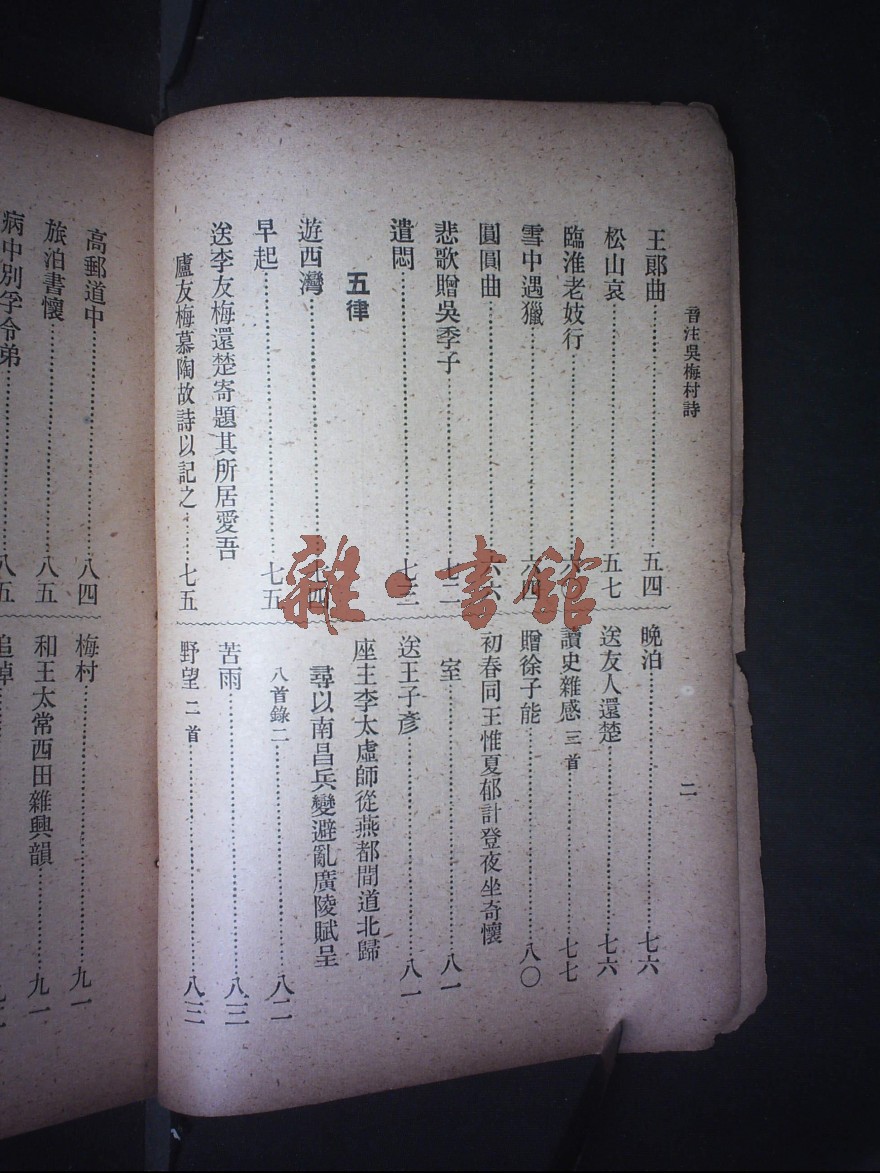 音注吳梅村詩
二
王郞曲……五四
松山哀……五七
臨淮老妓行……六
雪中遇獵……六四
圓圓曲……六六
悲歌贈吳季子……七二
遣悶……七三
五律
遊西灣……七四
早起……七五
送李友梅還楚寄題其所居愛吾
廬友梅慕陶故詩以記之……七五
晚泊……七六
送友人還楚……七六
讀史雜感 三首……七七
贈徐子能……八〇
初春同王惟夏郁計登夜坐奇懷
室……八一
送王子彥……八一
座主李太虛師從燕都間道北歸
尋以南昌兵變避亂廣陵賦呈
八首錄二……八二
苦雨……八三
野望 二首……八三
高郵道中……八四
旅泊書懷……八五
病中別孚令弟……八五
梅村……九一
和王太常西田雜興韻……九一
追悼
雜·書館